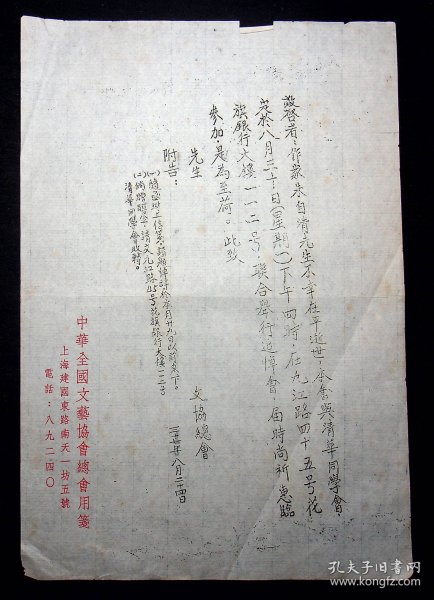 敬啓者：作家朱自清先生不幸在平逝世，本會與清華同學會，
定於八月三十日（星期一）下午四時，在九江路四十五号花
旗銀行大樓一一二号，聯合舉行追悼會，届時尚祈惠臨
參加，是為至荷。此致
先生
附告：
請
於本月廿九日以前交下。
請交九江路45号花旗銀行大樓一一二号
清華同學會收轉。
文協總會
八月二十四日
中華全國文藝協會總會用箋
上海建國東路南天一坊五號
電話：八九二四〇
孔夫子旧书网
www.kongfz.com